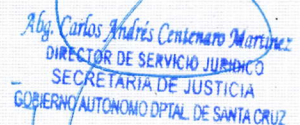 Abg. Carlos Andrés Centenaro Martinez
DIRECTOR DE SERVICIO JURIDICO
SECRETARIA DE JUSTICIA
GOBIERNO AUTONOMO DPTAL. DE SANTA CRUZ